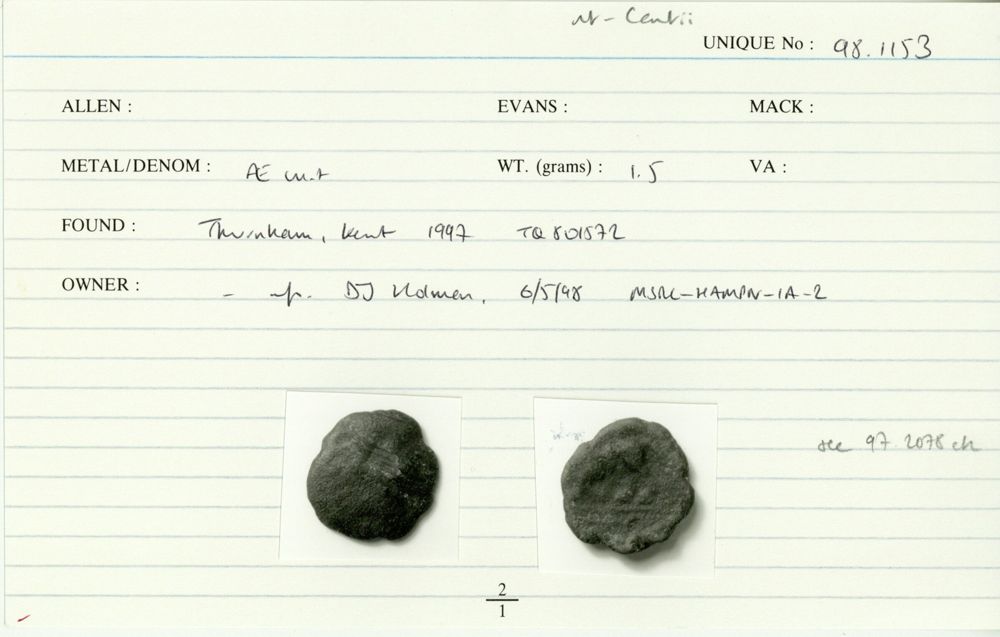 Cantii
UNIQUE No : 98.1153
ALLEN : EVANS : MACK :
METAL/DENOM : Æ unit WT. (grams) : 1.5 VA :
FOUND : Thurnham, Kent 1997 TQ 801572
OWNER : - inf. DJ Holman, 6/5/98 MSRC-HAMPN-IA-2
see 97.2078 etc
2
1